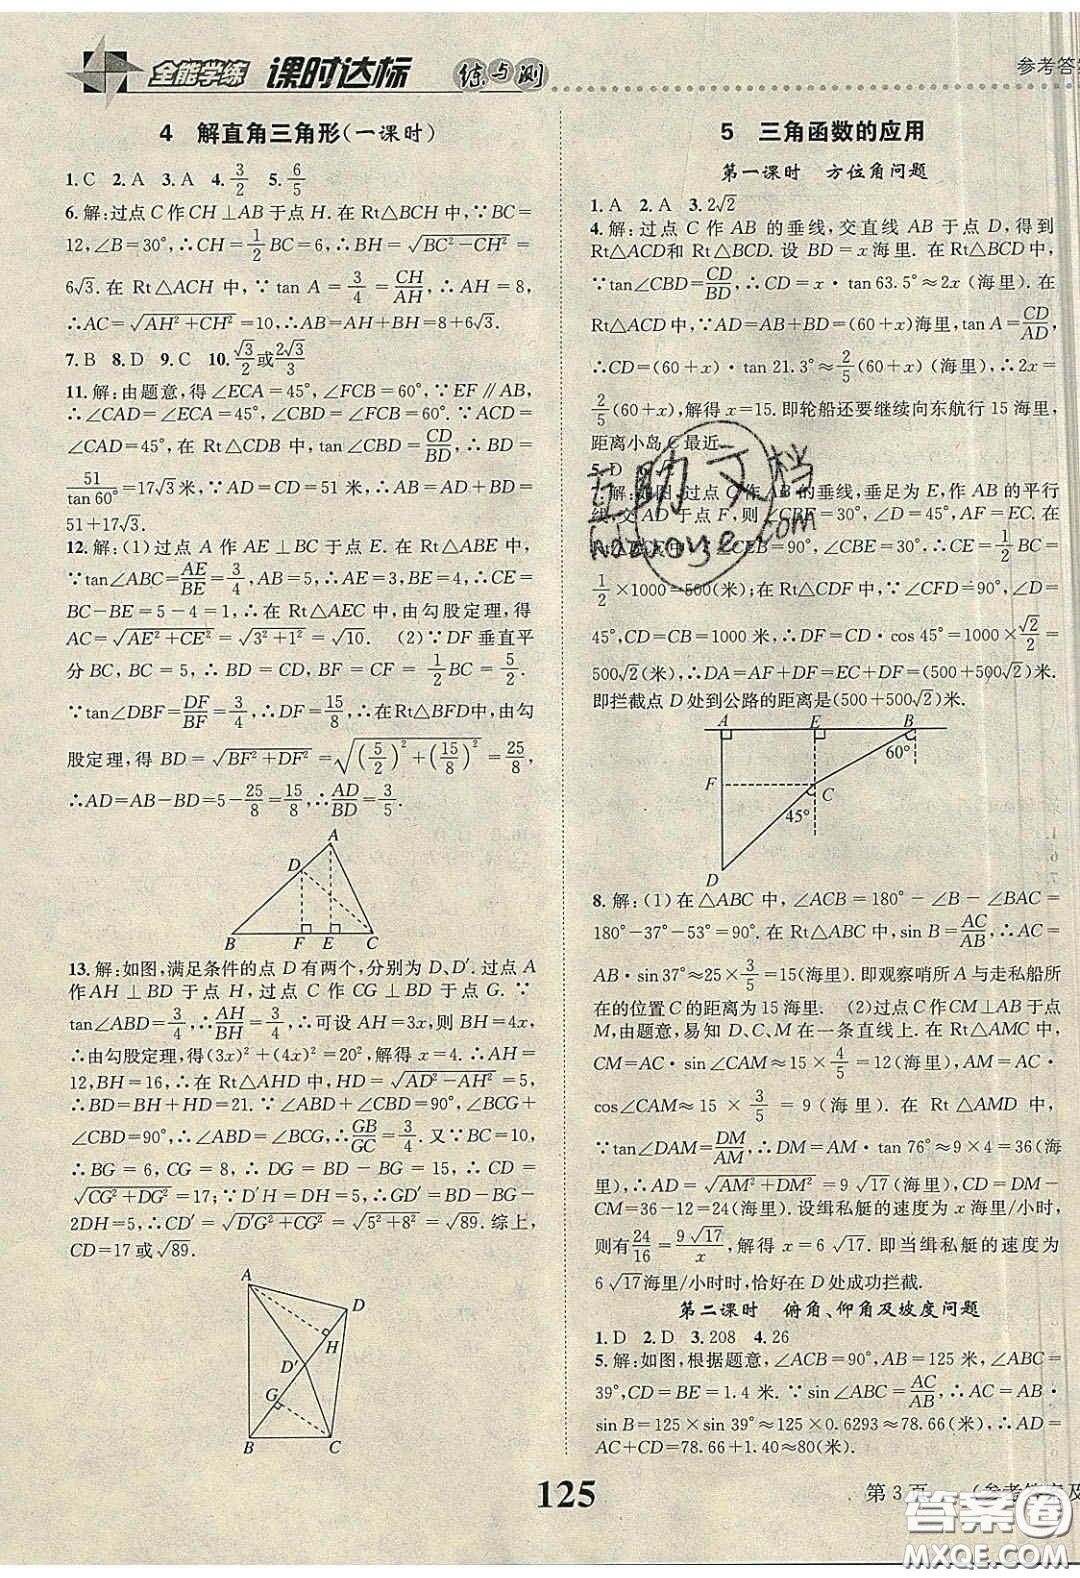 全能学练 课时达标 练与测
参考答案
4 解直角三角形(一课时)
1.C 2.A 3.A 4.3/2 5.6/5
6.解:过点C作CH⊥AB于点H.在Rt△BCH中,∵BC=
12,∠B=30°,∴CH=1/2BC=6,∴BH=√(BC²-CH²)=
6√3.在Rt△ACH中,∵tan A=3/4=CH/AH,∴AH=8,
∴AC=√(AH²+CH²)=10,∴AB=AH+BH=8+6√3.
7.B 8.D 9.C 10.√3/2或2√3/3
11.解:由题意,得∠ECA=45°,∠FCB=60°.∵EF∥AB,
∴∠CAD=∠ECA=45°,∠CBD=∠FCB=60°.∵∠ACD=
∠CAD=45°.在Rt△CDB中,tan∠CBD=CD/BD,∴BD=
51/tan60°=17√3米,∵AD=CD=51米,∴AB=AD+BD=
51+17√3.
12.解:(1)过点A作AE⊥BC于点E.在Rt△ABE中,
∵tan∠ABC=AE/BE=3/4,AB=5,∴AE=3,BE=4,∴CE=
BC-BE=5-4=1,在Rt△AEC中,由勾股定理,得
AC=√(AE²+CE²)=√(3²+1²)=√10. (2)∵DF垂直平
分BC,BC=5,∴BD=CD,BF=CF=1/2BC=5/2.
∵tan∠DBF=DF/BF=3/4,∴DF=15/8,∴在Rt△BFD中,由勾
股定理,得BD=√(BF²+DF²)=√((5/2)²+(15/8)²)=25/8,
∴AD=AB-BD=5-25/8=15/8,∴AD/BD=3/5.
A
D
B F E C
13.解:如图,满足条件的点D有两个,分别为D、D′.过点A
作AH⊥BD于点H,过点C作CG⊥BD于点G.∵
tan∠ABD=3/4,∴AH/BH=3/4,∴可设AH=3x,则BH=4x,
∴由勾股定理,得(3x)²+(4x)²=20²,解得x=4.∴AH=
12,BH=16,∴在Rt△AHD中,HD=√(AD²-AH²)=5,
∴BD=BH+HD=21.∵∠ABD+∠CBD=90°,∠BCG+
∠CBD=90°,∴∠ABD=∠BCG,∴GB/GC=3/4.又∵BC=10,
∴BG=6,CG=8,∴DG=BD-BG=15,∴CD=
√(CG²+DG²)=17;∵D′H=DH=5,∴GD′=BD-BG-
2DH=5,∴CD′=√(D′G²+CG²)=√(5²+8²)=√89.综上,
CD=17或√89.
A
D
H
D′
G
B C
5 三角函数的应用
第一课时 方位角问题
1.A 2.A 3.2√2
4.解:过点C作AB的垂线,交直线AB于点D,得到
Rt△ACD和Rt△BCD.设BD=x海里.在Rt△BCD中,
∵tan∠CBD=CD/BD,∴CD=x·tan63.5°≈2x(海里).在
Rt△ACD中,∵AD=AB+BD=(60+x)海里,tan A=CD/AD,
∴CD=(60+x)·tan 21.3°≈2/5(60+x)(海里),∴2x=
2/5(60+x),解得x=15.即轮船还要继续向东航行15海里,
距离小岛C最近.
5.D
7.解:如图,过点C作AB的垂线,垂足为E,作AB的平行
线,交AD于点F,则∠CBE=30°,∠D=45°,AF=EC.在
∠CEB=90°,∠CBE=30°,∴CE=1/2BC=
1/2×1000=500(米);在Rt△CFD中,∠CFD=90°,∠D=
45°,CD=CB=1000米,∴DF=CD·cos 45°=1000×√2/2=
500√2(米),∴DA=AF+DF=EC+DF=(500+500√2)米.
即拦截点D处到公路的距离是(500+500√2)米.
A E B
60°
F
C
45°
D
8.解:(1)在△ABC中,∠ACB=180°-∠B-∠BAC=
180°-37°-53°=90°.在Rt△ABC中,sin B=AC/AB,∴AC=
AB·sin 37°≈25×3/5=15(海里).即观察哨所A与走私船所
在的位置C的距离为15海里. (2)过点C作CM⊥AB于点
M,由题意,易知D、C、M在一条直线上.在Rt△AMC中,
CM=AC·sin∠CAM≈15×4/5=12(海里),AM=AC·
cos∠CAM≈15×3/5=9(海里).在Rt△AMD中,
∵tan∠DAM=DM/AM,∴DM=AM·tan 76°≈9×4=36(海
里),∴AD=√(AM²+DM²)=9√17(海里),CD=DM-
CM=36-12=24(海里).设缉私艇的速度为x海里/小时,
则有24/16=9√17/x,解得x=6√17.即当缉私艇的速度为
6√17海里/小时时,恰好在D处成功拦截.
第二课时 俯角、仰角及坡度问题
1.D 2.D 3.208 4.26
5.解:如图,根据题意,∠ACB=90°,AB=125米,∠ABC=
39°,CD=BE=1.4米.∵sin∠ABC=AC/AB,∴AC=AB·
sin B=125×sin 39°≈125×0.6293≈78.66(米),∴AD=
AC+CD=78.66+1.40≈80(米).
125
第3页
(参考答案及
互助文档
hdzuoye.com
答案圈
MXQE.COM